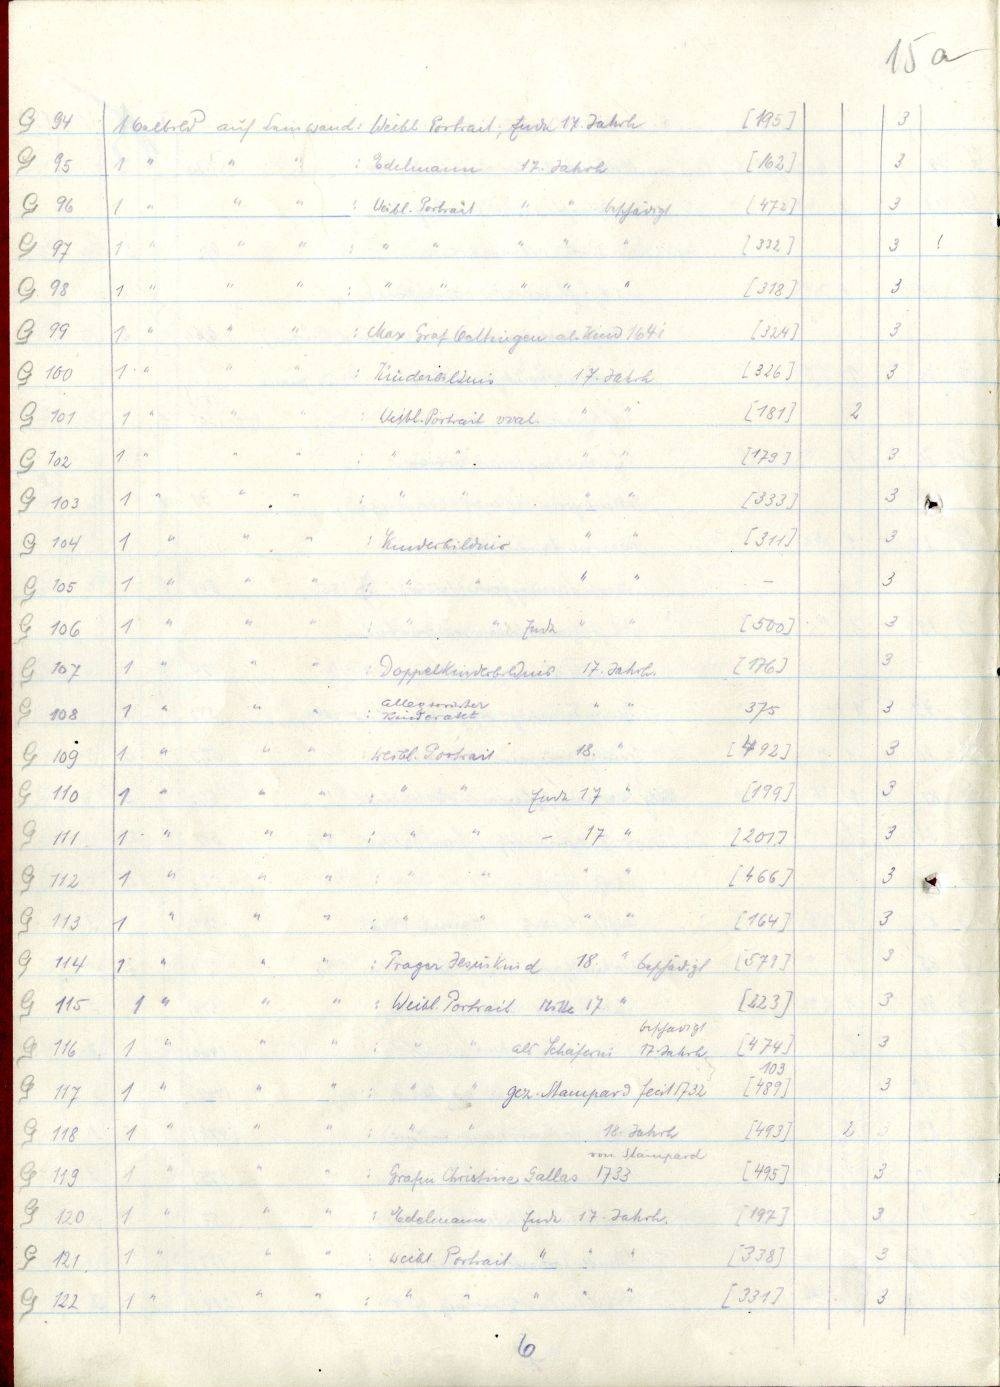 15 a
G 94 1 Oelbild auf Leinwand: Weibl. Portrait, Ende 17. Jahrh [195] 3
G 95 1 " " " : Edelmann 17. Jahrh [162] 3
G 96 1 " " " : Weibl. Portrait " " beschädigt [472] 3
G 97 1 " " " : " " " " " [332] 3 !
G 98 1 " " " : " " " " " [318] 3
G 99 1 " " " : Max Graf als Kind 1641 [324] 3
G 100 1 " " " : Kinderbildnis 17. Jahrh [326] 3
G 101 1 " " " : Weibl. Portrait oval. " " [181] 2
G 102 1 " " " : " " " " [179] 3
G 103 1 " " " : " " " " [333] 3
G 104 1 " " " : Kinderbildnis " " [311] 3
G 105 1 " " " : " " " " – 3
G 106 1 " " " : " " Ende " " [500] 3
G 107 1 " " " : Doppelkinderbildnis 17. Jahrh. [176] 3
G 108 1 " " " : allegorischer Kinderakt " " 375 3
G 109 1 " " " weibl. Portrait 18. " [492] 3
G 110 1 " " " : " " Ende 17 " [199] 3
G 111 1 " " " : " " – 17 " [201] 3
G 112 1 " " " : " " " " [466] 3
G 113 1 " " " : " " " " [164] 3
G 114 1 " " " : Prager Jesuskind 18. " beschädigt [579] 3
G 115 1 " " " : Weibl. Portrait Mitte 17 " [223] 3
beschädigt
G 116 1 " " " : " " als Schäferin 17. Jahrh [474] 3
103
G 117 1 " " " : " " gez. Stampard fecit 1732 [489] 3
G 118 1 " " " : " " 18. Jahrh [493] 2 3
von Stampard
G 119 1 " " " : Gräfin Christine Gallas 1733 [495] 3
G 120 1 " " " : Edelmann Ende 17. Jahrh. [197] 3
G 121. 1 " " " : weibl Portrait " " " [338] 3
G 122 1 " " " : " " " " " [331] 3
6